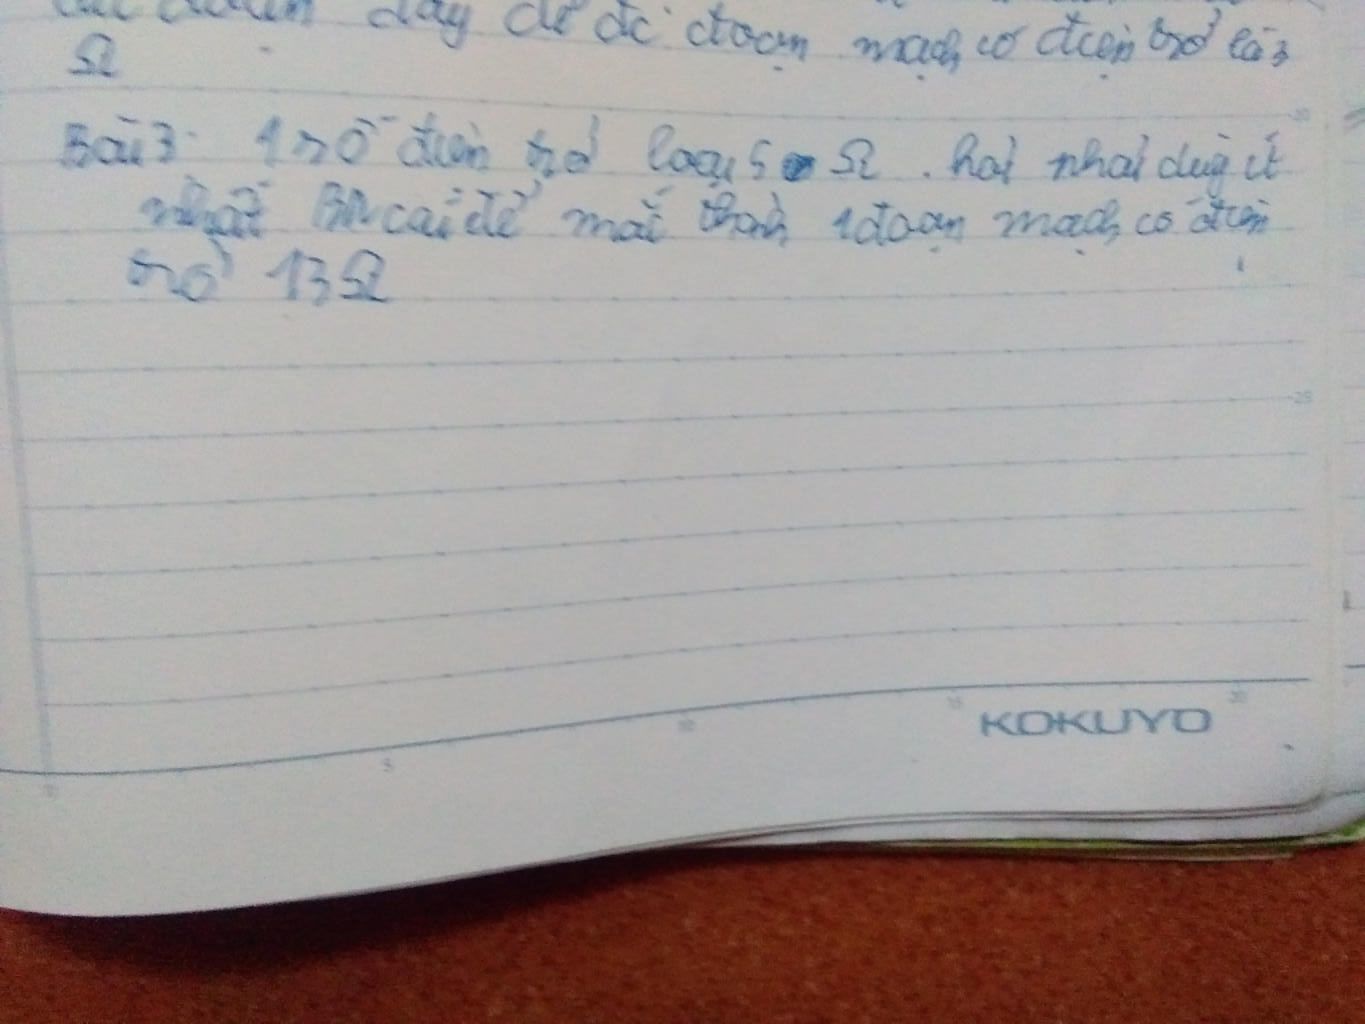 dây để đc đoạn mạch có điện trở là 3
Ω
Bài 3: 1 số điện trở loại 5 Ω. hỏi phải dùg ít
nhất BN cái để mắc thành 1 đoạn mạch có điện
trở 13Ω
KOKUYO